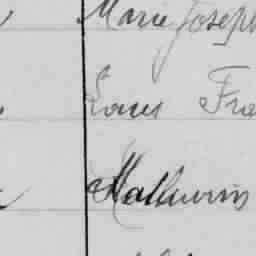 Marie Joseph
Louis Fra
Mathurin